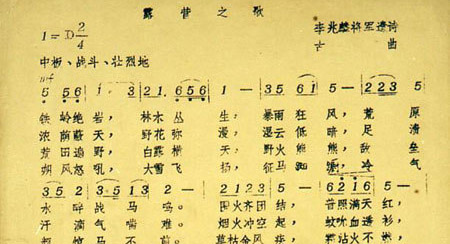 露营之歌
1=D2/4 李兆麟将军遗诗
古曲
中板、战斗、壮烈地
mf
5 56 1· 3 21. 656 1 - 35 61 5 - 2235 5
铁岭绝岩, 林木丛生, 暴雨狂风, 荒原
浓荫蔽天, 野花弥漫, 湿云低暗, 足渍
荒田遍野, 白露横天, 野火熊熊, 敌垒
朔风怒吼, 大雪飞扬, 征马踟蹰, 冷气
35 2 3513 2 - 1 23 5 - 6216 5
水畔战马鸣。 围火齐团结, 普照满天红,
汗滴气喘难。 烟火冲空起, 蚊吮血透衫,
马不